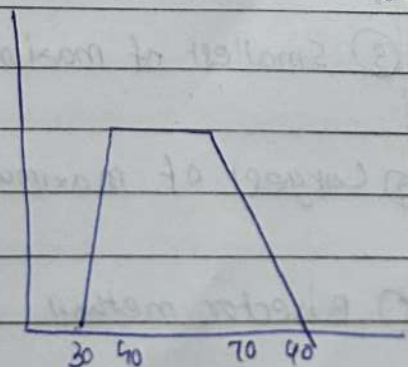 30 40 70 90